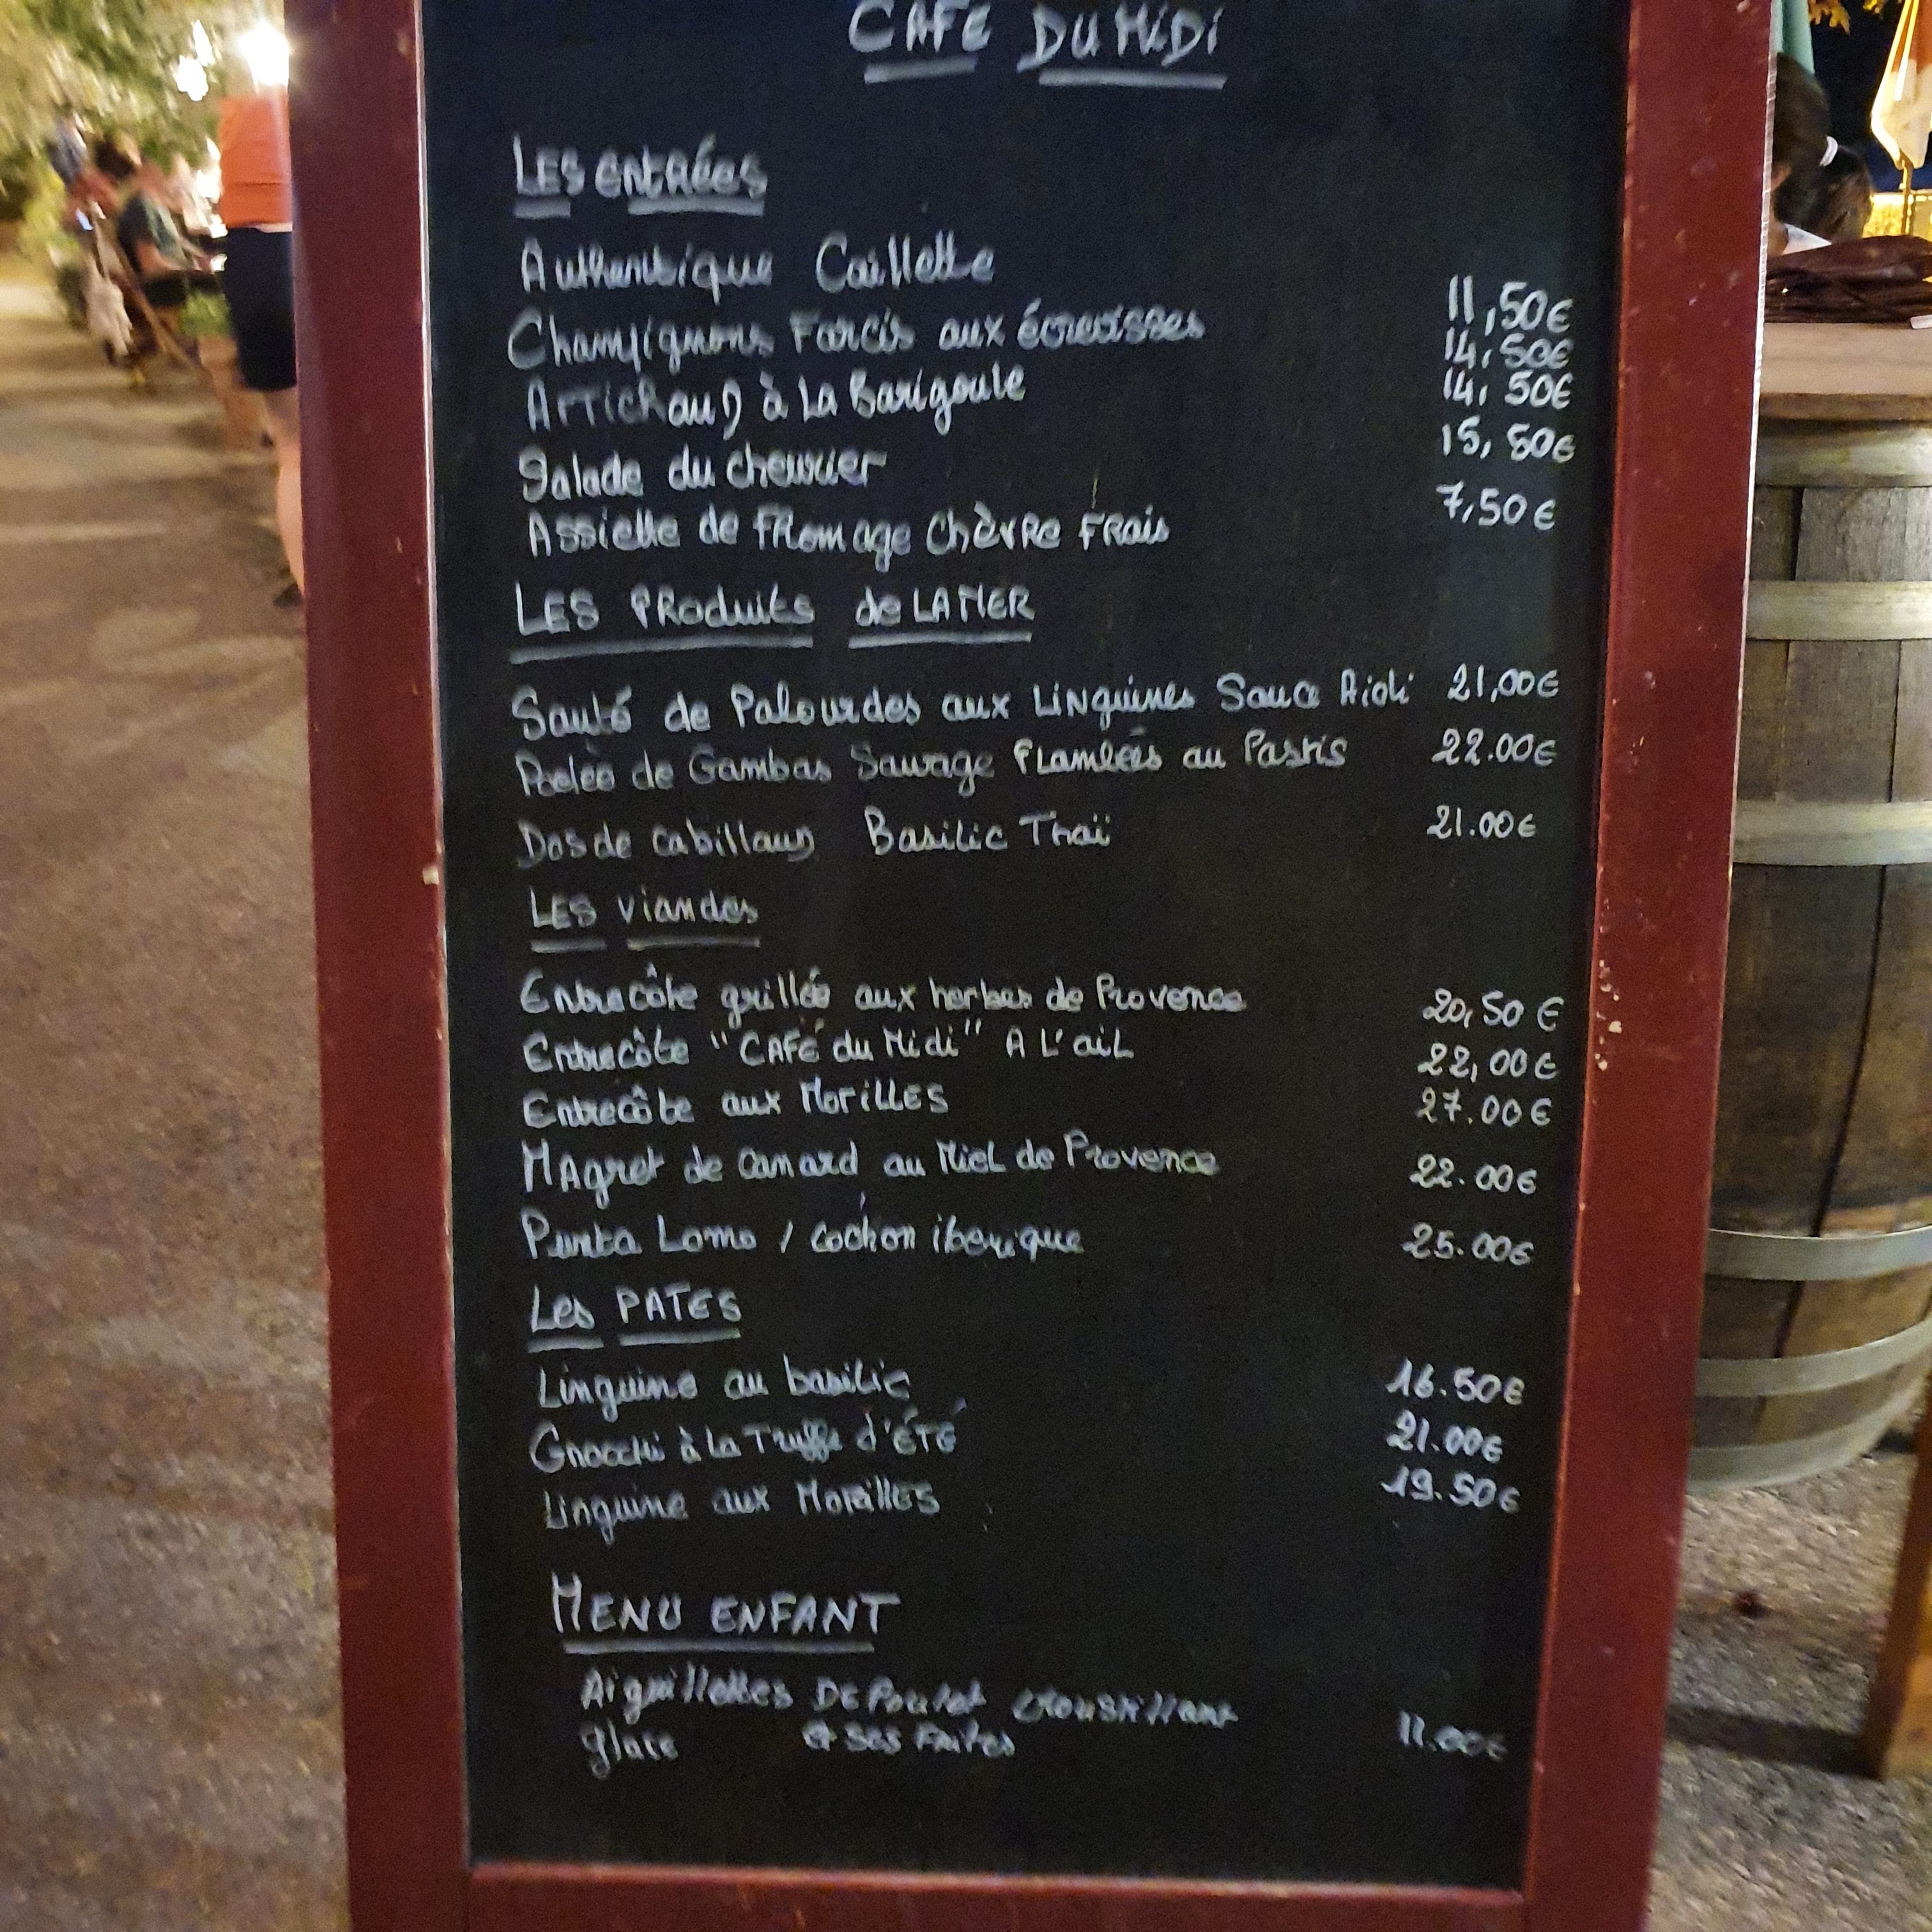 CAFE DU MIDI
LES ENTRÉES
Authentique Caillette 11,50€
Champignons Farcis aux écrevisses 14,50€
Artichaud à la Barigoule 14,50€
Salade du chevrier 15,50€
Assiette de Fromage Chèvre Frais 7,50€
LES PRoduits de LA MER
Sauté de Palourdes aux Linguines Sauce Aioli 21,00€
Poelée de Gambas Sauvage Flambées au Pastis 22.00€
Dos de cabillaud Basilic Thaï 21.00€
LES viandes
Entrecôte grillée aux herbes de Provence 20,50€
Entrecôte "CAFÉ du Midi" A L'aiL 22,00€
Entrecôte aux MoriLLES 27.00€
MAgret de canard au MieL de Provence 22.00€
Punta Lomo / cochon iberique 25.00€
Les PATES
Linguine au basilic 16.50€
Gnocchi à la Truffe d'ÉTÉ 21.00€
Linguine aux MoriLLES 19.50€
MENU ENFANT
Aiguillettes DE Poulet croustillant
glace & ses Frites 11.00€